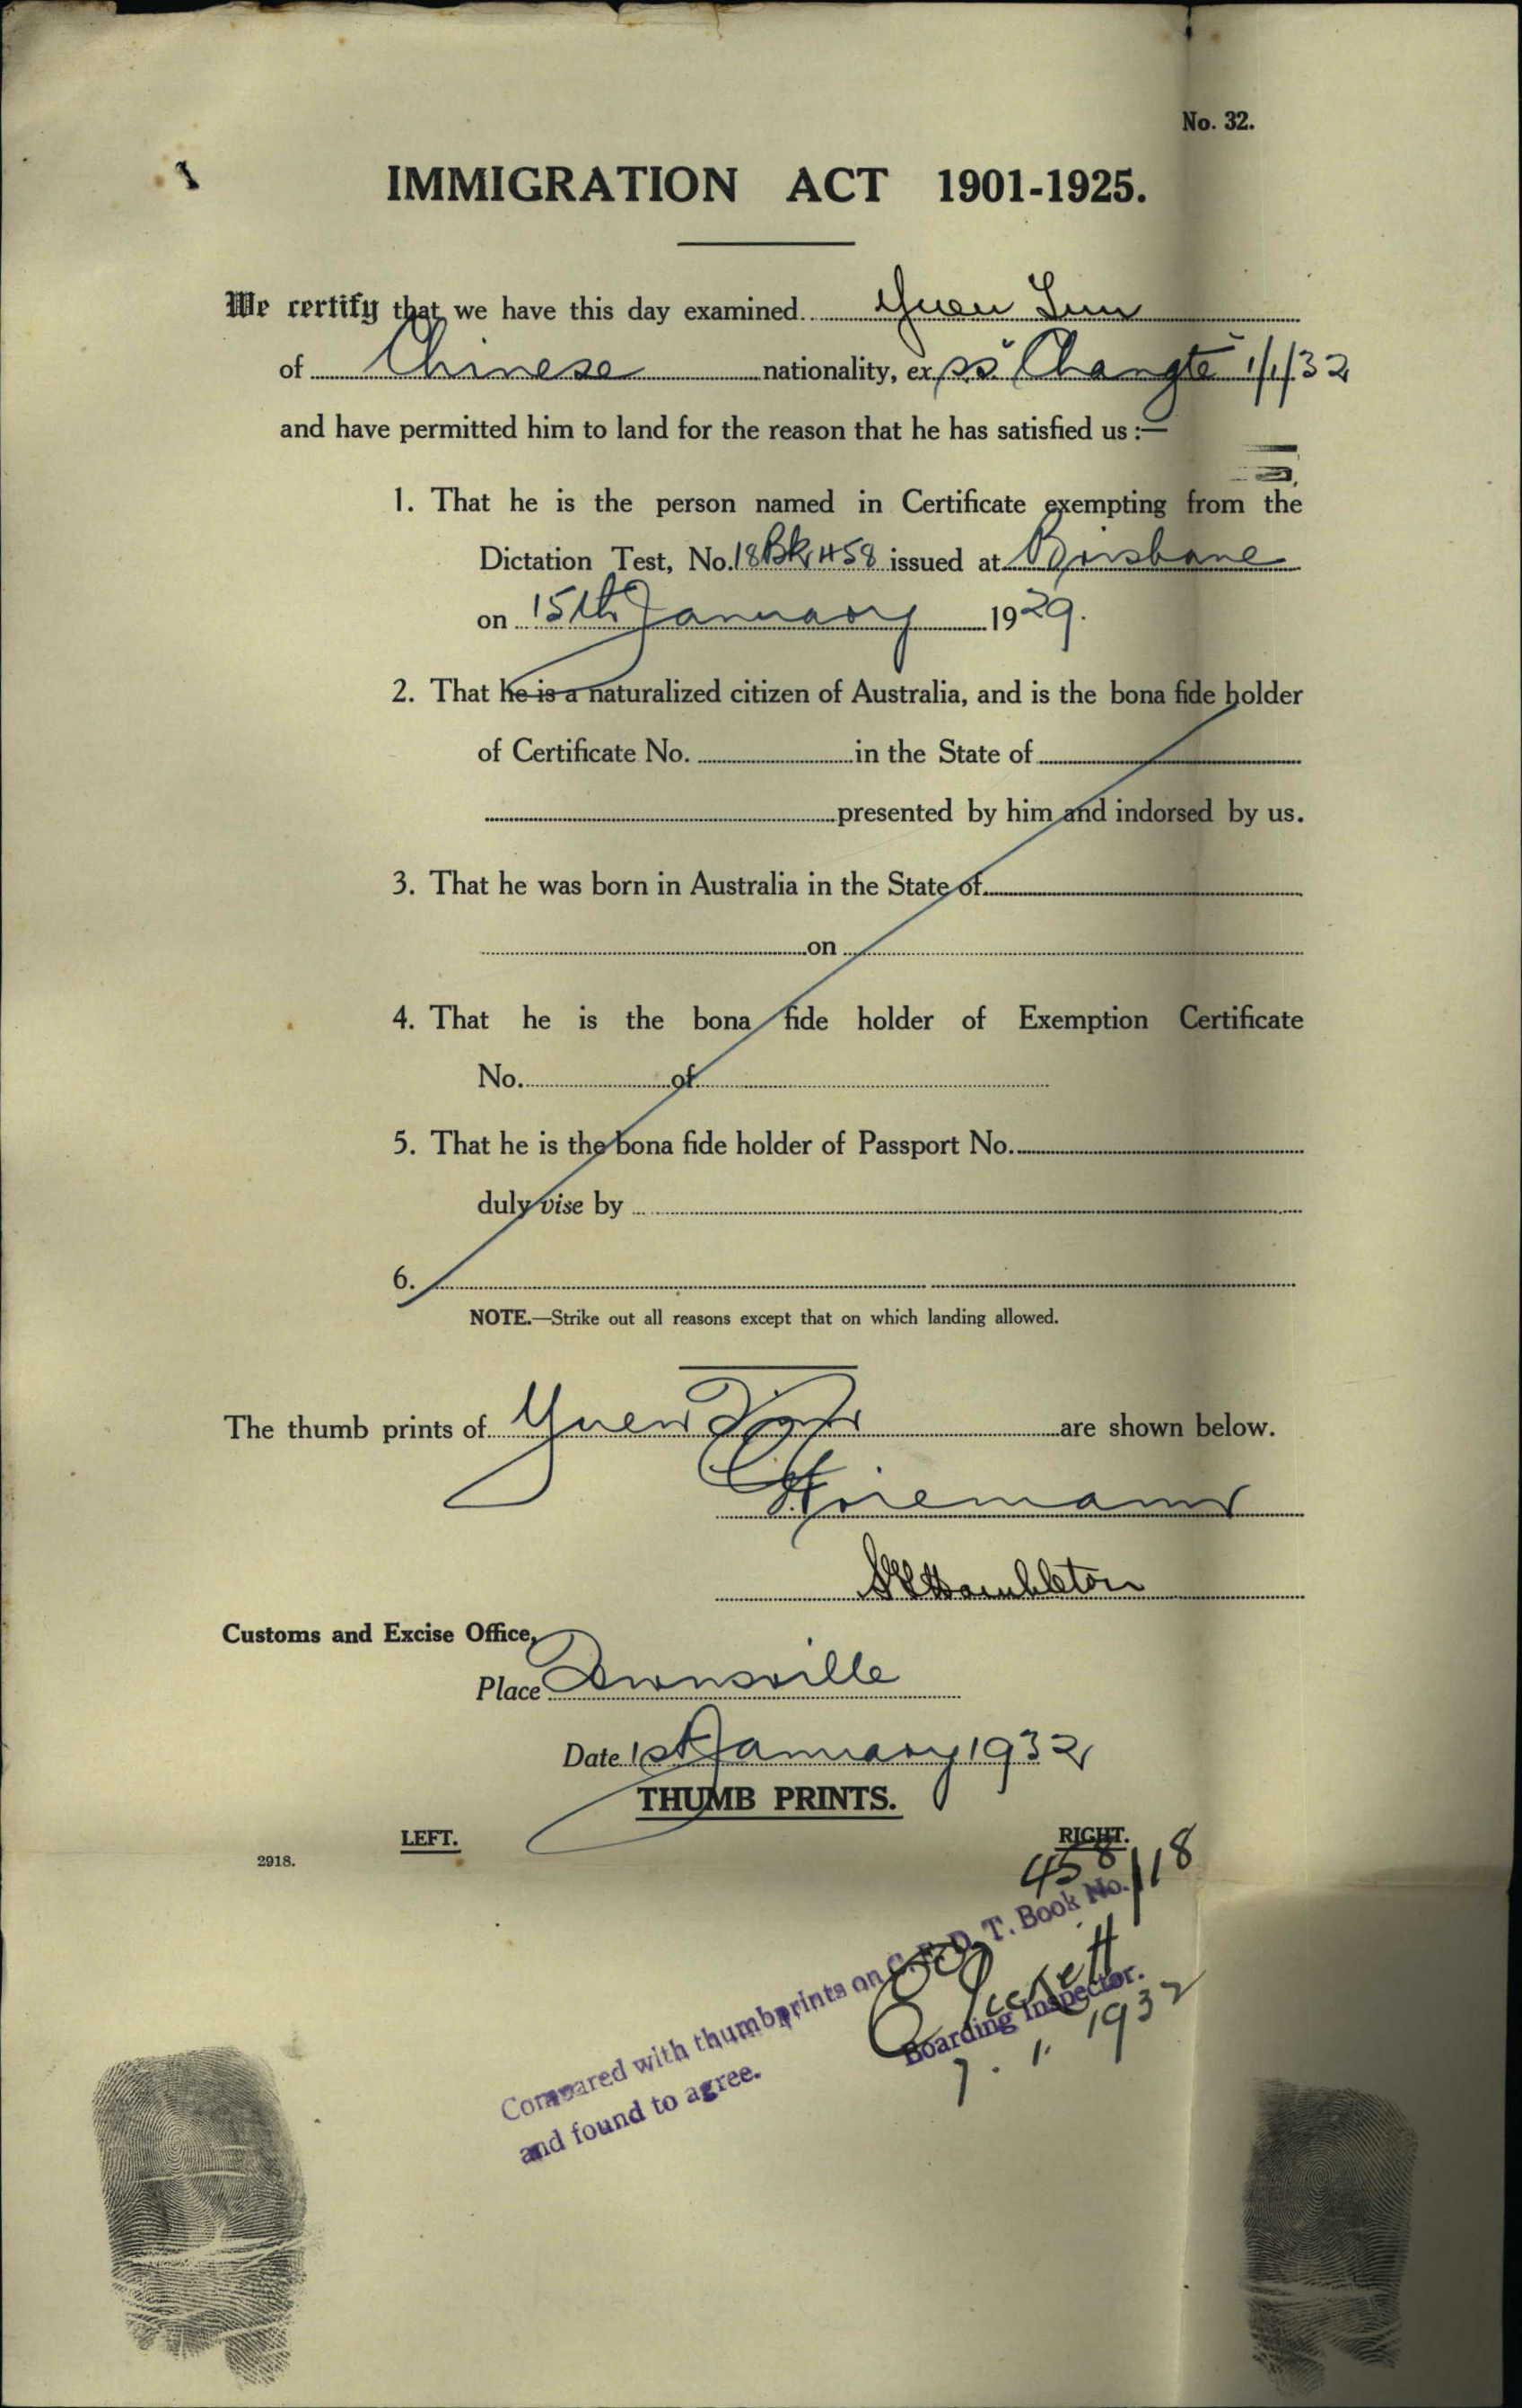 No. 32.
IMMIGRATION ACT 1901-1925.
We certify that we have this day examined Yuen
of Chinese nationality, ex ss "Changte" 1/1/32
and have permitted him to land for the reason that he has satisfied us :—
1. That he is the person named in Certificate exempting from the
Dictation Test, No. 18 Bk 458 issued at Brisbane
on 15th January 1929.
2. That he is a naturalized citizen of Australia, and is the bona fide holder
of Certificate No. in the State of
presented by him and indorsed by us.
3. That he was born in Australia in the State of
on
4. That he is the bona fide holder of Exemption Certificate
No. of
5. That he is the bona fide holder of Passport No.
duly vise by
6.
NOTE.—Strike out all reasons except that on which landing allowed.
The thumb prints of Yuen are shown below.
Hambleton
Customs and Excise Office,
Place Townsville
Date 1st January 1932
THUMB PRINTS.
LEFT. RIGHT.
2918.
458/18
Compared with thumbprints on C.E.D.T. Book No.
and found to agree.
Boarding Inspector.
7. 1. 1932